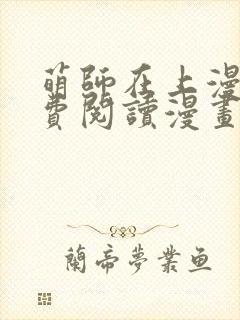 萌師在上漫
費閱讀漫畫
蘭帝夢業鱼